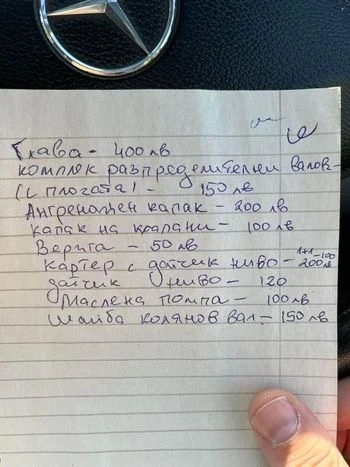 Глава - 400 лв
комплек разпределителни валов-
(с плочата) - 150 лв
Ангренажен капак - 200 лв
капак на клапани - 100 лв
Верига - 50 лв
Картер с датчик ниво - 200 лв
датчик ниво - 120
Маслена помпа - 100 лв
Шайба колянов вал. - 150 лв